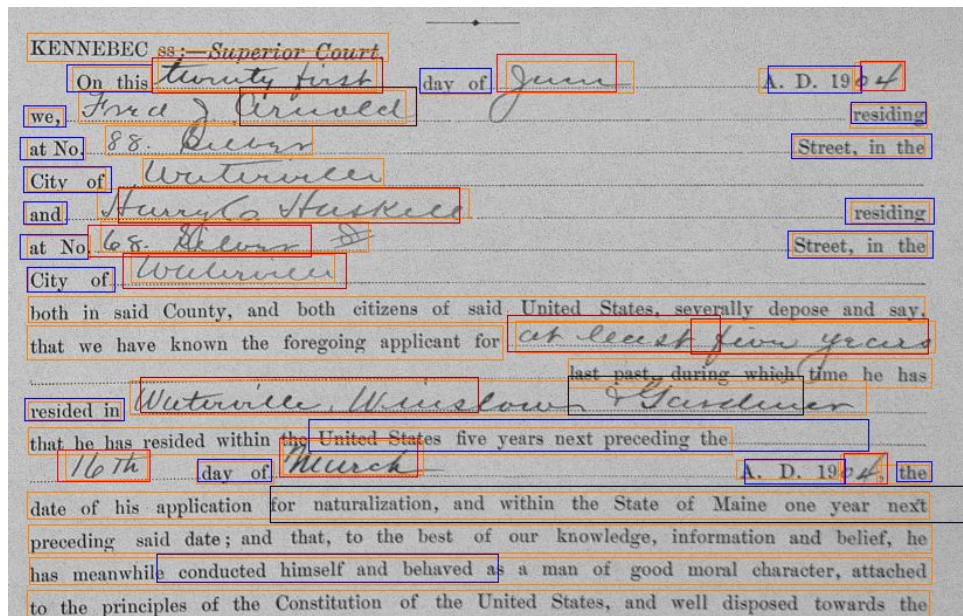 KENNEBEC ss:—Superior Court
On this twenty first day of June A. D. 1904
we, Fred J. Arnold residing
at No. 88. Silver Street, in the
City of Waterville
and Harry C. Haskell residing
at No. 68. Silver St Street, in the
City of Waterville
both in said County, and both citizens of said United States, severally depose and say,
that we have known the foregoing applicant for at least five years
last past, during which time he has
resided in Waterville, Winslow & Gardiner
that he has resided within the United States five years next preceding the
16th day of March A. D. 1904, the
date of his application for naturalization, and within the State of Maine one year next
preceding said date; and that, to the best of our knowledge, information and belief, he
has meanwhile conducted himself and behaved as a man of good moral character, attached
to the principles of the Constitution of the United States, and well disposed towards the